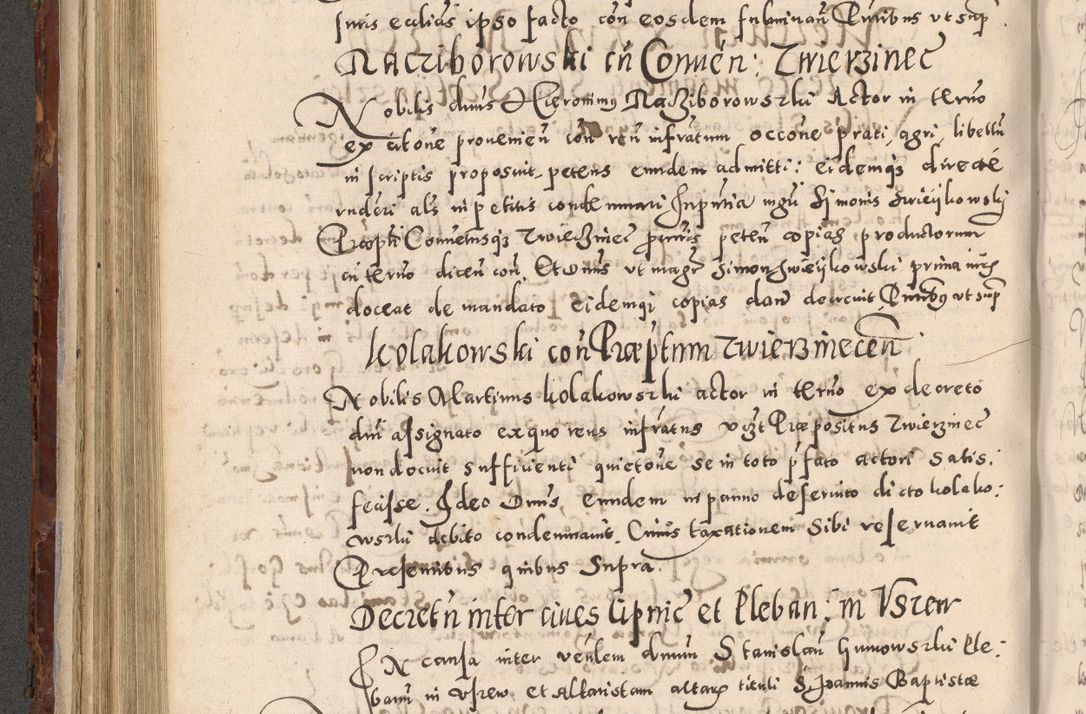 Juris ecclias ipso facto con eosdem fulminan Pntibus vt supra
Racziborowski cu Conuen: Zwierzinec
Nobilis dnus Hieronimus Racziborowszki Actor in termo
ex citone prouenien con reu infratum occone prati, agri, libellu
in scriptis proposuit petens eundem admitti: eidemqz directe
rnderi als in petitis condemnari In pntia mgri Simonis Zwieykowskj
Praepti Conuentusqz Zwierzinec pnris peten copias productorum
cu termo dicen con. Et Dnus vt magr Simon Zwieykowski prima iuris
doceat de mandato eidemqz copias dari decreuit Pntibus vt supra
Kolakowski con Praeptum Zwierzinecen
Nobilis Martinus Kolakowszki actor in termo ex decreto
dni assignato ex quo reus infratus vczt Praepositus Zwierzinec
non docuit sufficienti quietone se in toto pfato actori satis.
fecisse. Ideo Dnus eundem in panno deseruito dicto Kolako:
wszki debito condemnauit. Cuius taxationem sibi reseruauit
Presentibus quibus supra.
Decretu inter ciues Lipnic et Pleban: in Vsrew
In causa inter venlem dnum Stanislau Humowszki Ple:
banu in Vsrew et Altaristam altaris tituli S. Joannis Baptistae